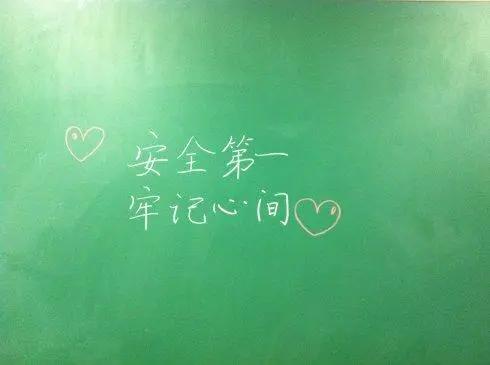 安全第一
牢记心间